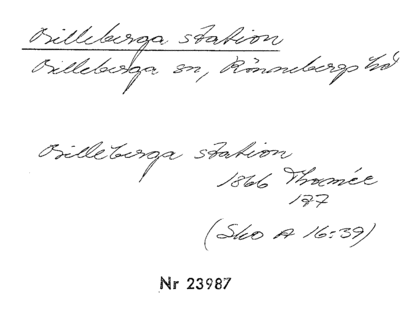 Billeberga station
Billeberga sn, Rönnebergs hd
Billeberga station
1866 Thomée
177
(Sko A 16:39)
Nr 23987